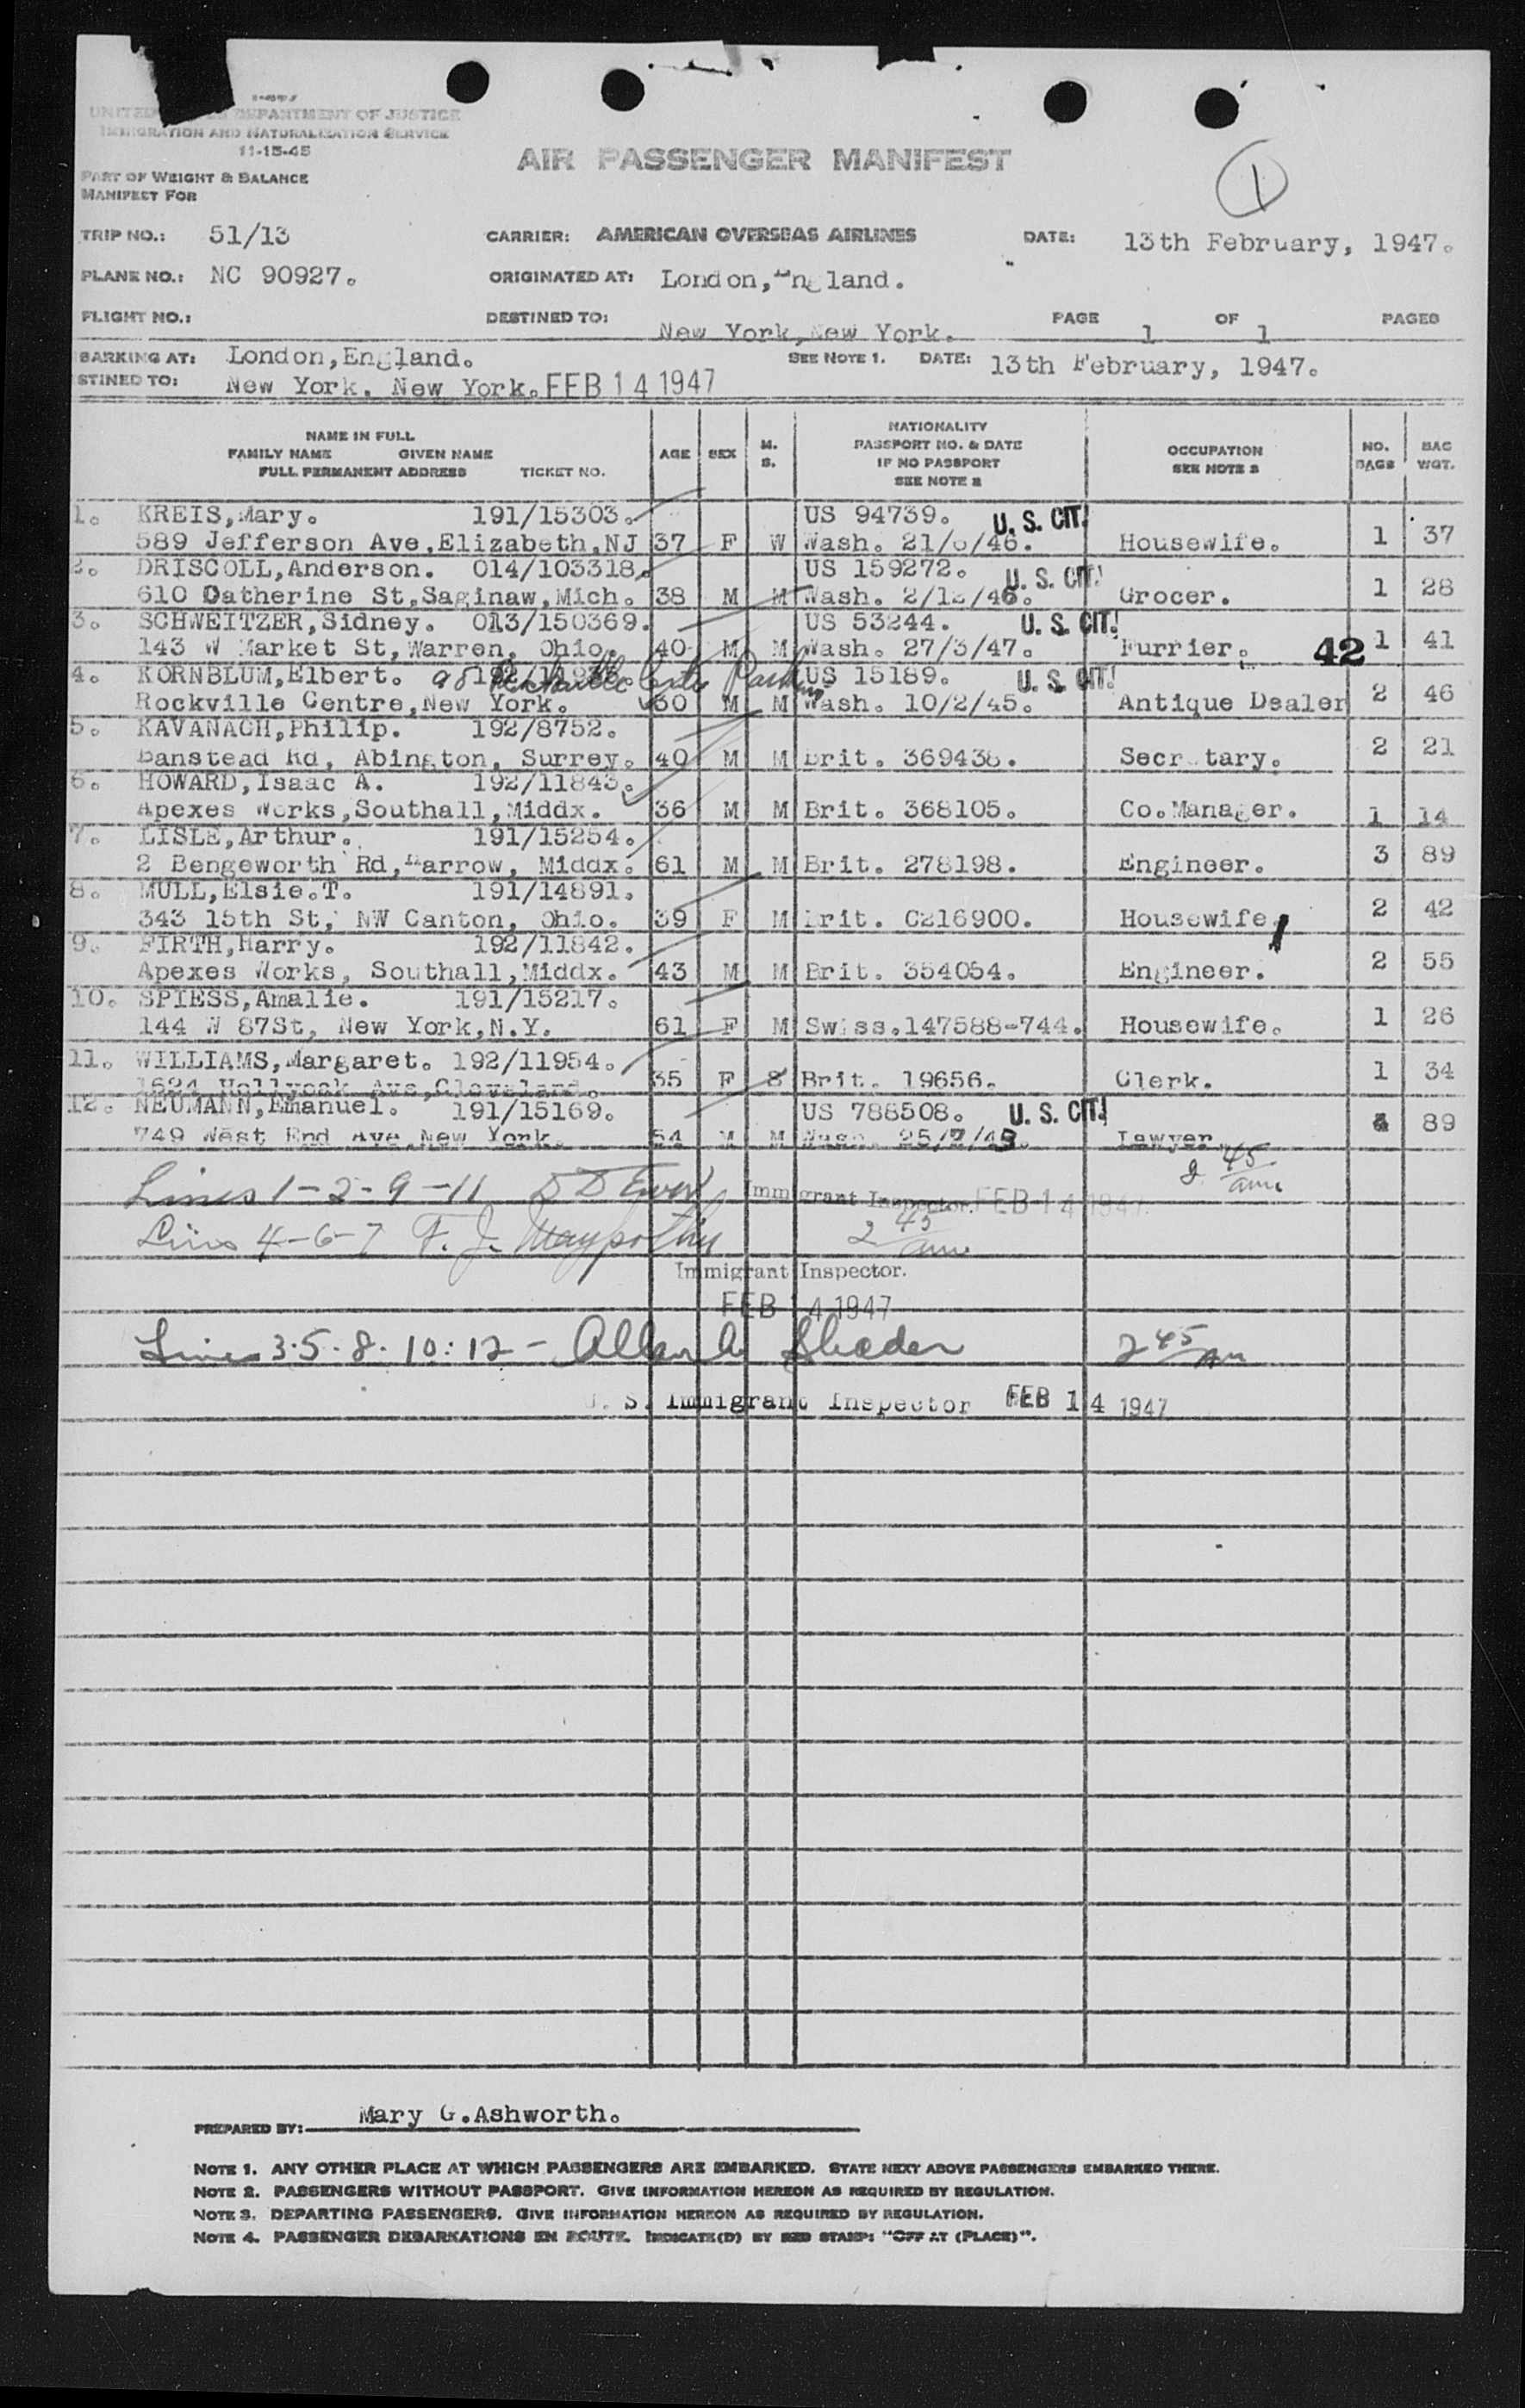 I-487
UNITED DEPARTMENT OF JUSTICE
IMMIGRATION AND NATURALIZATION SERVICE
11-15-45
AIR PASSENGER MANIFEST
1
PART OF WEIGHT & BALANCE
MANIFEST FOR
TRIP NO.: 51/13 CARRIER: AMERICAN OVERSEAS AIRLINES DATE: 13th February, 1947.
PLANE NO.: NC 90927. ORIGINATED AT: London,England.
FLIGHT NO.: DESTINED TO: New York,New York. PAGE 1 OF 1 PAGES
BARKING AT: London,England. SEE NOTE 1. DATE: 13th February, 1947.
STINED TO: New York. New York. FEB 14 1947
NAME IN FULL
FAMILY NAME GIVEN NAME
FULL PERMANENT ADDRESS TICKET NO. AGE SEX M. S. NATIONALITY PASSPORT NO. & DATE IF NO PASSPORT SEE NOTE 2 OCCUPATION SEE NOTE 3 NO. BAGS BAG WGT.
1. KREIS,Mary. 191/15303. US 94739. U. S. CIT.
589 Jefferson Ave,Elizabeth,NJ 37 F W Wash. 21/6/46. Housewife. 1 37
2. DRISCOLL,Anderson. 014/103318. US 159272. U. S. CIT.
610 Catherine St,Saginaw,Mich. 38 M M Wash. 2/12/46. Grocer. 1 28
3. SCHWEITZER,Sidney. 013/150369. US 53244. U. S. CIT.
143 W Market St,Warren, Ohio. 40 M M Wash. 27/3/47. Furrier. 42 1 41
4. KORNBLUM,Elbert. 98 Rockville Centre US 15189. U. S. CIT.
Rockville Centre,New York. 30 M M Wash. 10/2/45. Antique Dealer 2 46
5. KAVANACH,Philip. 192/8752.
Banstead Rd, Abington, Surrey. 40 M M Brit. 369438. Secretary. 2 21
6. HOWARD,Isaac A. 192/11843.
Apexes Works,Southall,Middx. 36 M M Brit. 368105. Co.Manager. 1 14
7. LISLE,Arthur. 191/15254.
2 Bengeworth Rd,Harrow, Middx. 61 M M Brit. 278198. Engineer. 3 89
8. MULL,Elsie.T. 191/14891.
343 15th St, NW Canton, Ohio. 39 F M Brit. C216900. Housewife. 2 42
9. FIRTH,Harry. 192/11842.
Apexes Works, Southall,Middx. 43 M M Brit. 354054. Engineer. 2 55
10. SPIESS,Amalie. 191/15217.
144 W 87St, New York,N.Y. 61 F M Swiss.147588-744. Housewife. 1 26
11. WILLIAMS,Margaret. 192/11954.
1624 Hollyoak Ave,Cleveland. 35 F S Brit. 19656. Clerk. 1 34
12. NEUMANN,Emanuel. 191/15169. US 788508. U. S. CIT.
749 West End Ave,New York. 54 M M Wash. Lawyer. 89
2 45 am
Lines 1-2-9-11 Immigrant Inspector. FEB 14 1947
Lines 4-6-7 F. J. 2 45 am
Immigrant Inspector.
FEB 14 1947
Lines 3.5.8.10:12 - 2 45 am
U. S. Immigrant Inspector FEB 14 1947
PREPARED BY: Mary G.Ashworth.
NOTE 1. ANY OTHER PLACE AT WHICH PASSENGERS ARE EMBARKED. STATE NEXT ABOVE PASSENGERS EMBARKED THERE.
NOTE 2. PASSENGERS WITHOUT PASSPORT. GIVE INFORMATION HEREON AS REQUIRED BY REGULATION.
NOTE 3. DEPARTING PASSENGERS. GIVE INFORMATION HEREON AS REQUIRED BY REGULATION.
NOTE 4. PASSENGER DEBARKATIONS EN ROUTE. INDICATE(D) BY RED STAMP: "OFF AT (PLACE)".